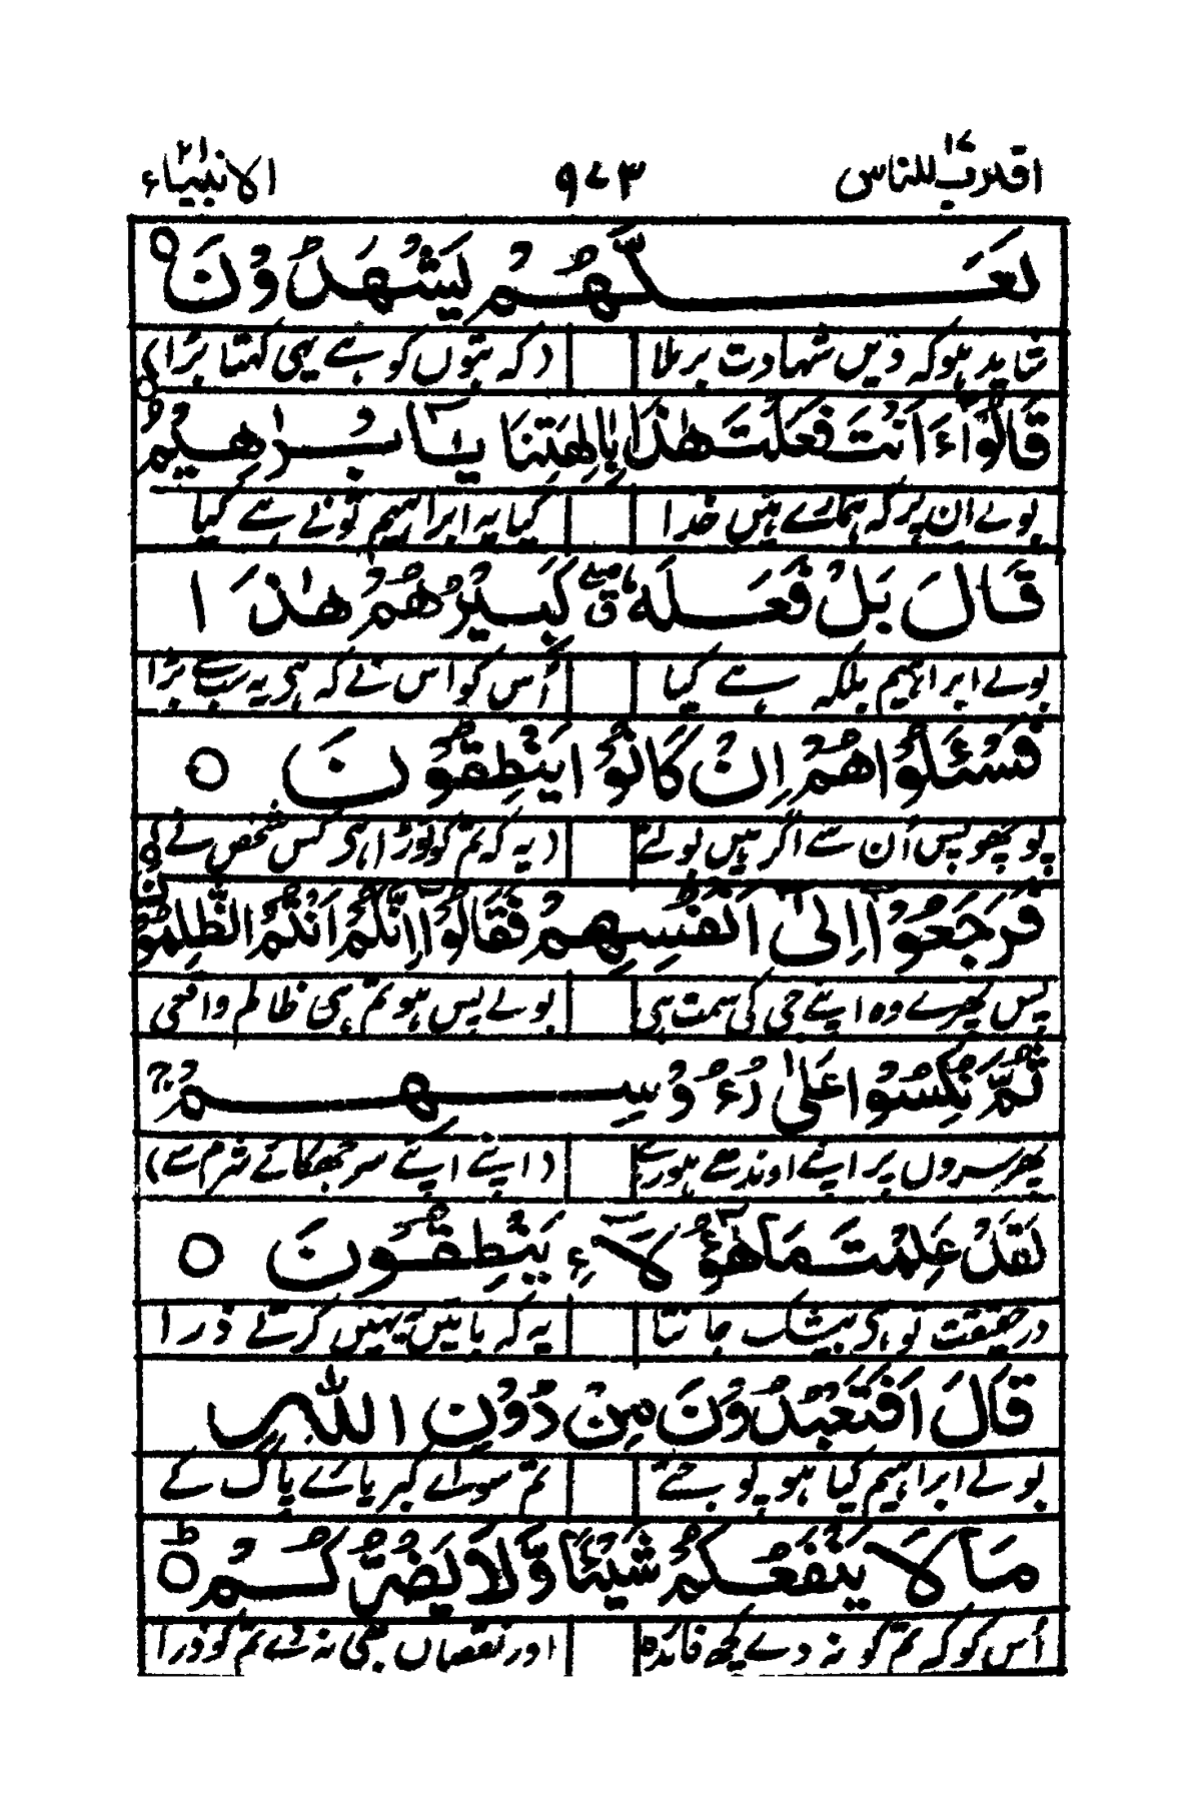 اقترب للناس ۱۷ ۹۷۳ الانبیاء ۲۱
لَعَلَّهُمْ يَشْهَدُوْنَ ○
شاید ہو کہ دیں شہادت برملا (کہ بتوں کو ہے یہی کہتا بڑا)
قَالُوْٓا ءَاَنْتَ فَعَلْتَ هٰذَا بِاٰلِهَتِنَا يٰٓاِبْرٰهِيْمُ ○
بولے ان پر کہ ہمارے ہیں خدا کیا یہ ابراہیم تونے ہے کیا
قَالَ بَلْ فَعَلَهٗ ۖ ق كَبِيْرُهُمْ هٰذَا
بولے ابراہیم بلکہ ہے کیا اُس کو اس نے کہ ہی یہ سب سے بڑا
فَسْـَٔلُوْهُمْ اِنْ كَانُوْا يَنْطِقُوْنَ ○
پوچھو پس اُن سے اگر ہیں بولتے (یہ کہ تم کو توڑا ہی کس شخص نے)
فَرَجَعُوْٓا اِلٰٓى اَنْفُسِهِمْ فَقَالُوْٓا اِنَّكُمْ اَنْتُمُ الظّٰلِمُوْنَ ○
پس پھرے وہ اپنے جی کی سمت ہی بولے پس ہو تم ہی ظالم واقعی
ثُمَّ نُكِسُوْا عَلٰى رُءُوْسِهِمْ ۚ
پھر سروں پر اپنے اوندھے ہو رہے (اپنے اپنے سر جھکائے شرم سے)
لَقَدْ عَلِمْتَ مَا هٰٓؤُلَآءِ يَنْطِقُوْنَ ○
در حقیقت تو ہی بیشک جانتا یہ کہ باتیں یہ نہیں کرتے ذرا
قَالَ اَفَتَعْبُدُوْنَ مِنْ دُوْنِ اللّٰهِ
بولے ابراہیم کیا ہو پوجتے تم سوائے کبریائے پاک کے
مَا لَا يَنْفَعُكُمْ شَيْـًٔا وَّلَا يَضُرُّكُمْ ○ ط
اُس کو کہ تم کو نہ دے کچھ فائدہ اور نقصاں بھی نہ دے تم کو ذرا